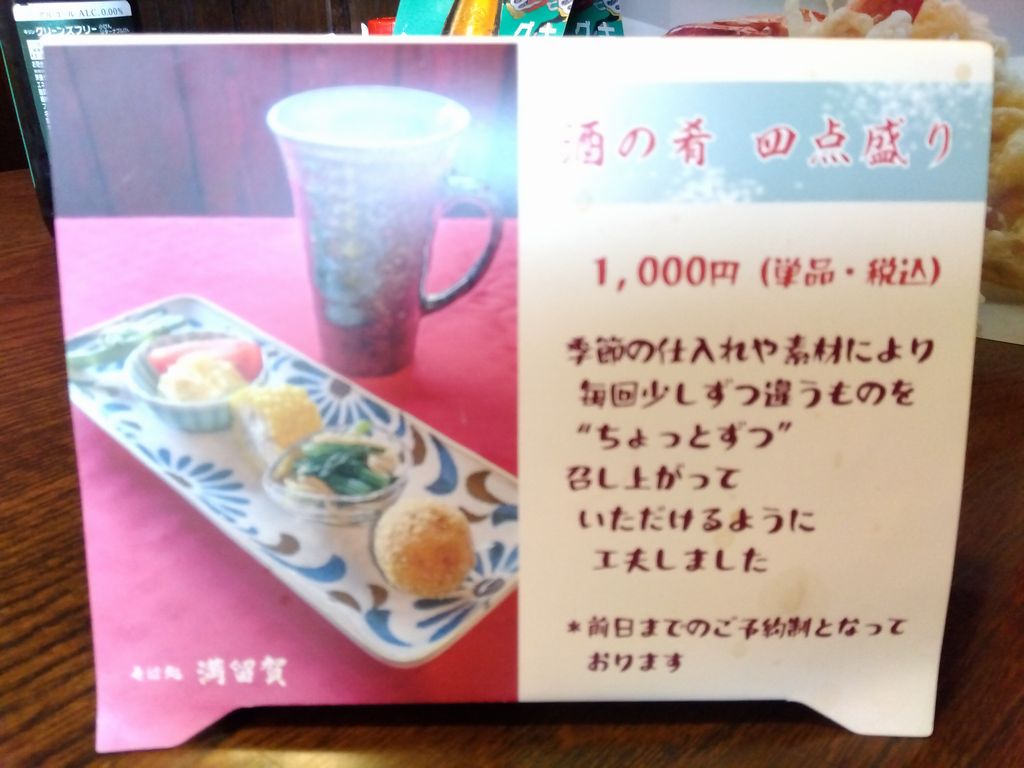 アルコール ALC.0.00%
グリーンズフリー
酒の肴 四点盛り
1,000円 (単品・税込)
季節の仕入れや素材により
毎回少しずつ違うものを
“ちょっとずつ”
召し上がって
いただけるように
工夫しました
*前日までのご予約制となって
おります
そば処 満留賀